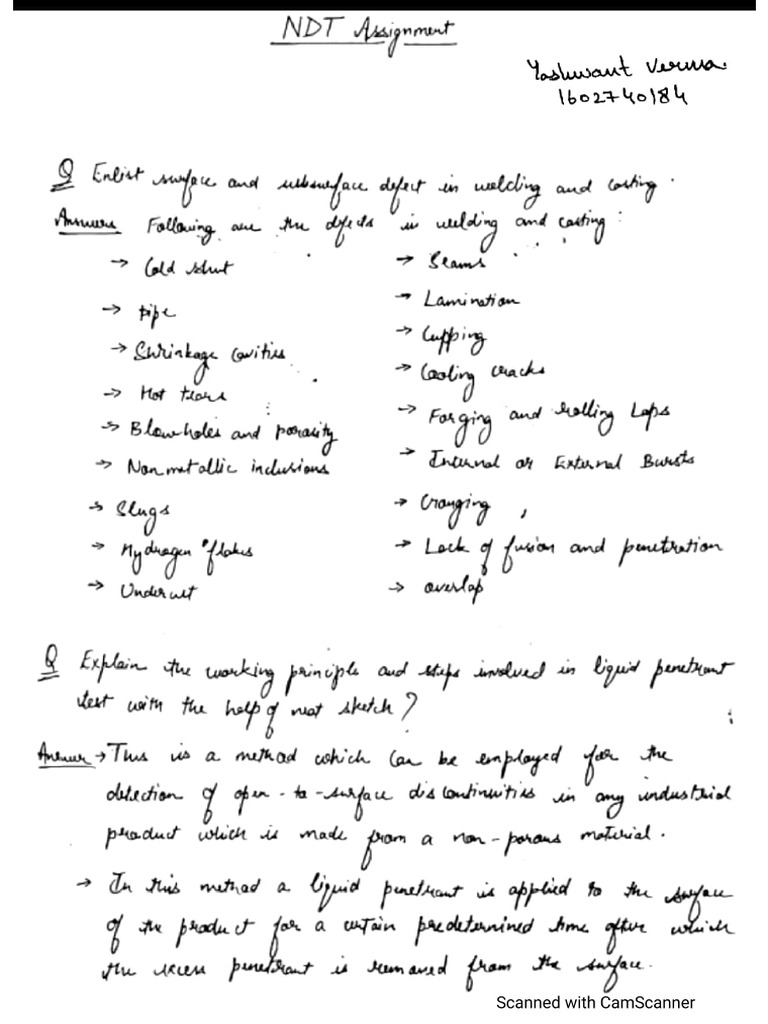 NDT Assignment
Yashwant Verma
1602740184
Q Enlist surface and subsurface defect in welding and casting.
Answers Following are the defects in welding and casting:
→ Cold shut
→ Pipe
→ Shrinkage cavities
→ Hot tears
→ Blowholes and porosity
→ Nonmetallic inclusions
→ Slugs
→ Hydrogen flakes
→ Undercut
→ Seams
→ Lamination
→ Cupping
→ Cooling cracks
→ Forging and rolling Laps
→ Internal or External Bursts
→
→ Lack of fusion and penetration
→ overlap
Q Explain the working principle and steps involved in liquid penetrant
test with the help of neat sketch?
Answer → This is a method which can be employed for the
detection of open-to-surface discontinuities in any industrial
product which is made from a non-porous material.
→ In this method a liquid penetrant is applied to the surface
of the product for a certain predetermined time after which
the excess penetrant is removed from the surface.
Scanned with CamScanner